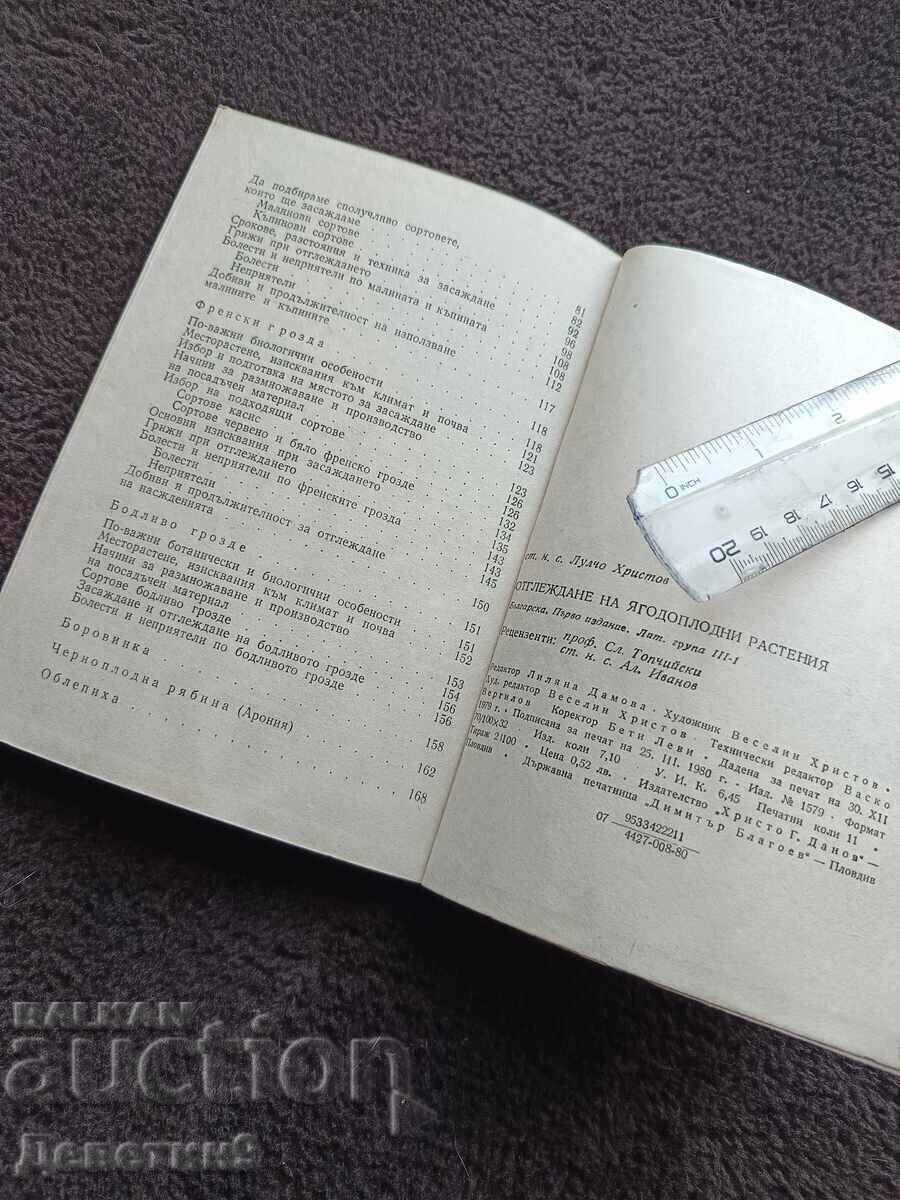 Да подбираме сполучливо сортовете,
които ще засаждаме
Малинови сортове
Къпинови сортове
Срокове, разстояния и техника за засаждане
Грижи при отглеждането
Болести и неприятели по малината и къпината
Болести
Неприятели
Добиви и продължителност на използване
малините и къпините
81
82
92
96
98
108
108
112
Френски грозда
По-важни биологични особености
Месторастене, изисквания към климат и почва
Избор и подготовка на мястото за засаждане
Начини за размножаване и производство
на посадъчен материал
Избор на подходящи сортове
Сортове касис
Сортове червено и бяло френско грозде
Основни изисквания при засаждането
Грижи при отглеждането
Болести и неприятели по френските грозда
Болести
Неприятели
Добиви и продължителност за отглеждане
на насжденията
117
118
118
121
123
123
126
126
132
134
135
143
143
145
Бодливо грозде
По-важни ботанически и биологични особености
Месторастене, изисквания към климат и почва
Начини за размножаване и производство
на посадъчен материал
Сортове бодливо грозде
Засаждане и отглеждане на бодливото грозде
Болести и неприятели по бодливото грозде
150
151
151
152
153
154
156
156
Боровинка
158
Черноплодна рябина (Арония)
162
Облепиха
168
0 INCH 1 2
20 19 18 17 16 15
ст. н. с. Лулчо Христов
ОТГЛЕЖДАНЕ НА ЯГОДОПЛОДНИ РАСТЕНИЯ
Българска, Първо издание. Лит. група III-1
Рецензенти: проф. Сл. Топчийски
ст. н. с. Ал. Иванов
Редактор Лиляна Дамова. Художник Веселин Христов.
Худ. редактор Веселин Христов. Технически редактор Васко
Вергилов Коректор Бети Леви. Дадена за печат на 30. XII
1979 г. Подписана за печат на 25. III. 1980 г. Изд. № 1579. Формат
70/100×32 Изд. коли 7,10 У. И. К. 6,45 Печатни коли 11
Тираж 2/100. Цена 0,52 лв. Издателство „Христо Г. Данов“ —
Пловдив. Държавна печатница „Димитър Благоев“ — Пловдив
07 9533422211
4427-008-80
BALKAN
auction
Депеткин9